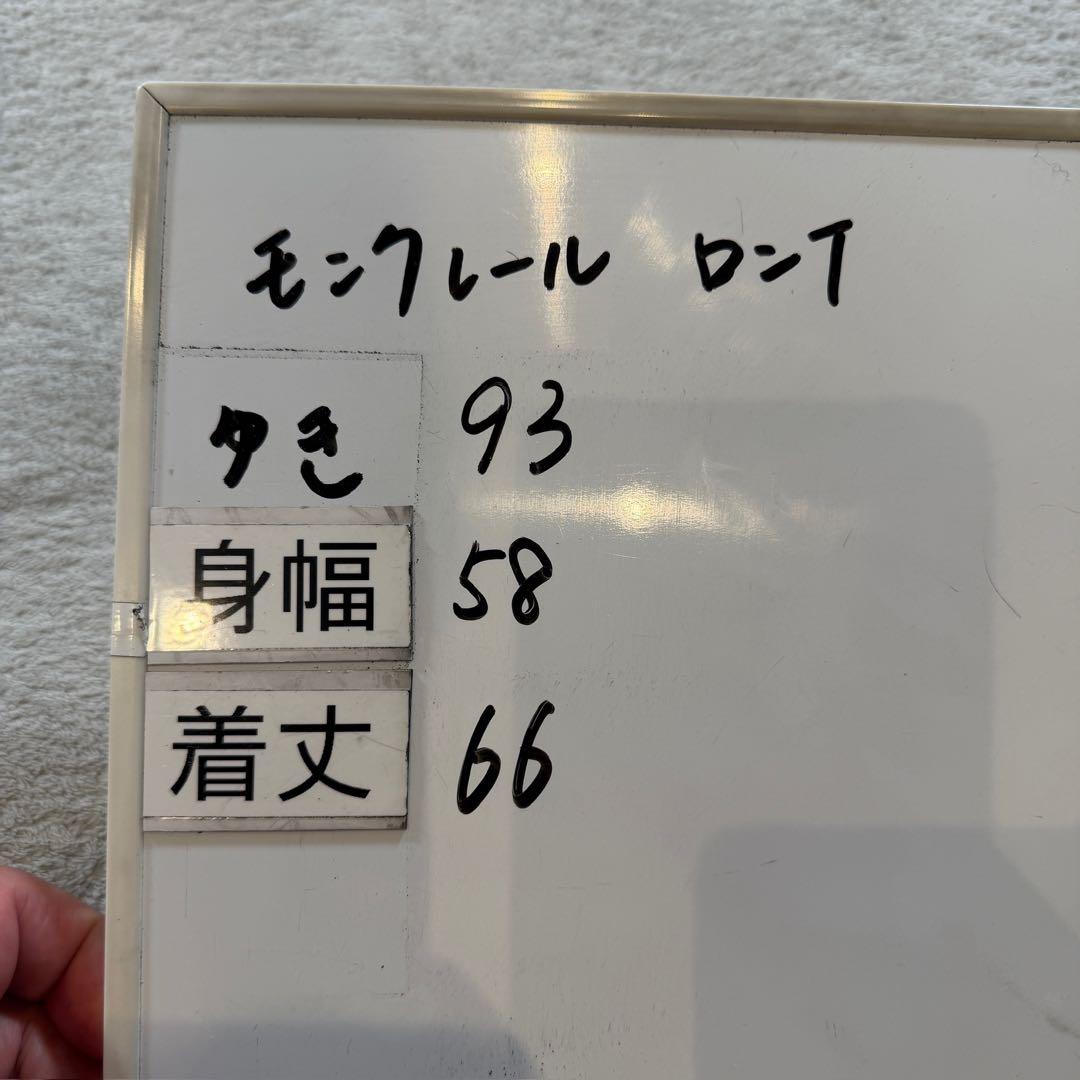 モンクレール ロンT
夕き 93
身幅 58
着丈 66